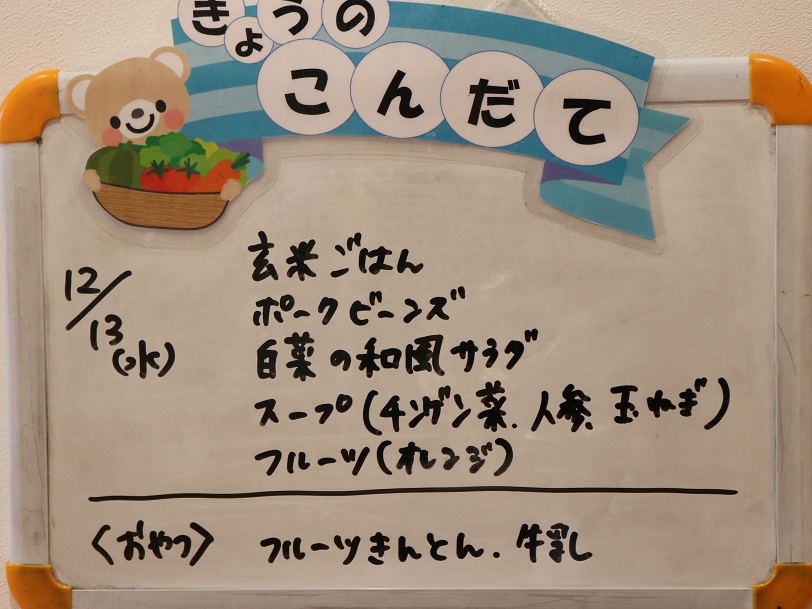 きょうの
こんだて
12/13(水)
玄米ごはん
ポークビーンズ
白菜の和風サラダ
スープ(チンゲン菜、人参、玉ねぎ)
フルーツ(オレンジ)
〈おやつ〉 フルーツきんとん、牛乳